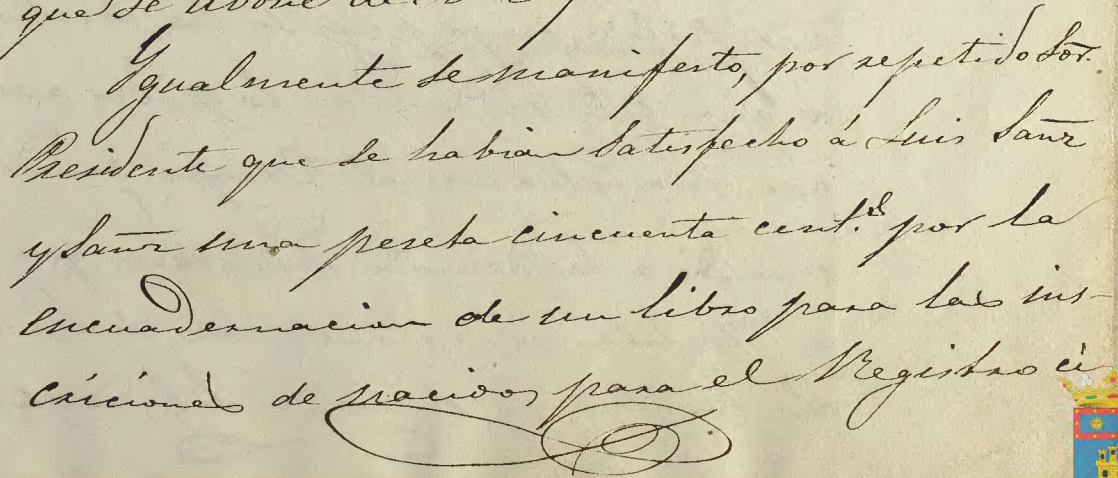 que se abone
Ygualmente se manifesto, por repetido Sor.
Presidente que se habian Satisfecho á Luis Sanz
y Sanz una peseta cincuenta cent.s por la
encuadernacion de un libro para las ins-
criciones de nacidos para el Registro ci